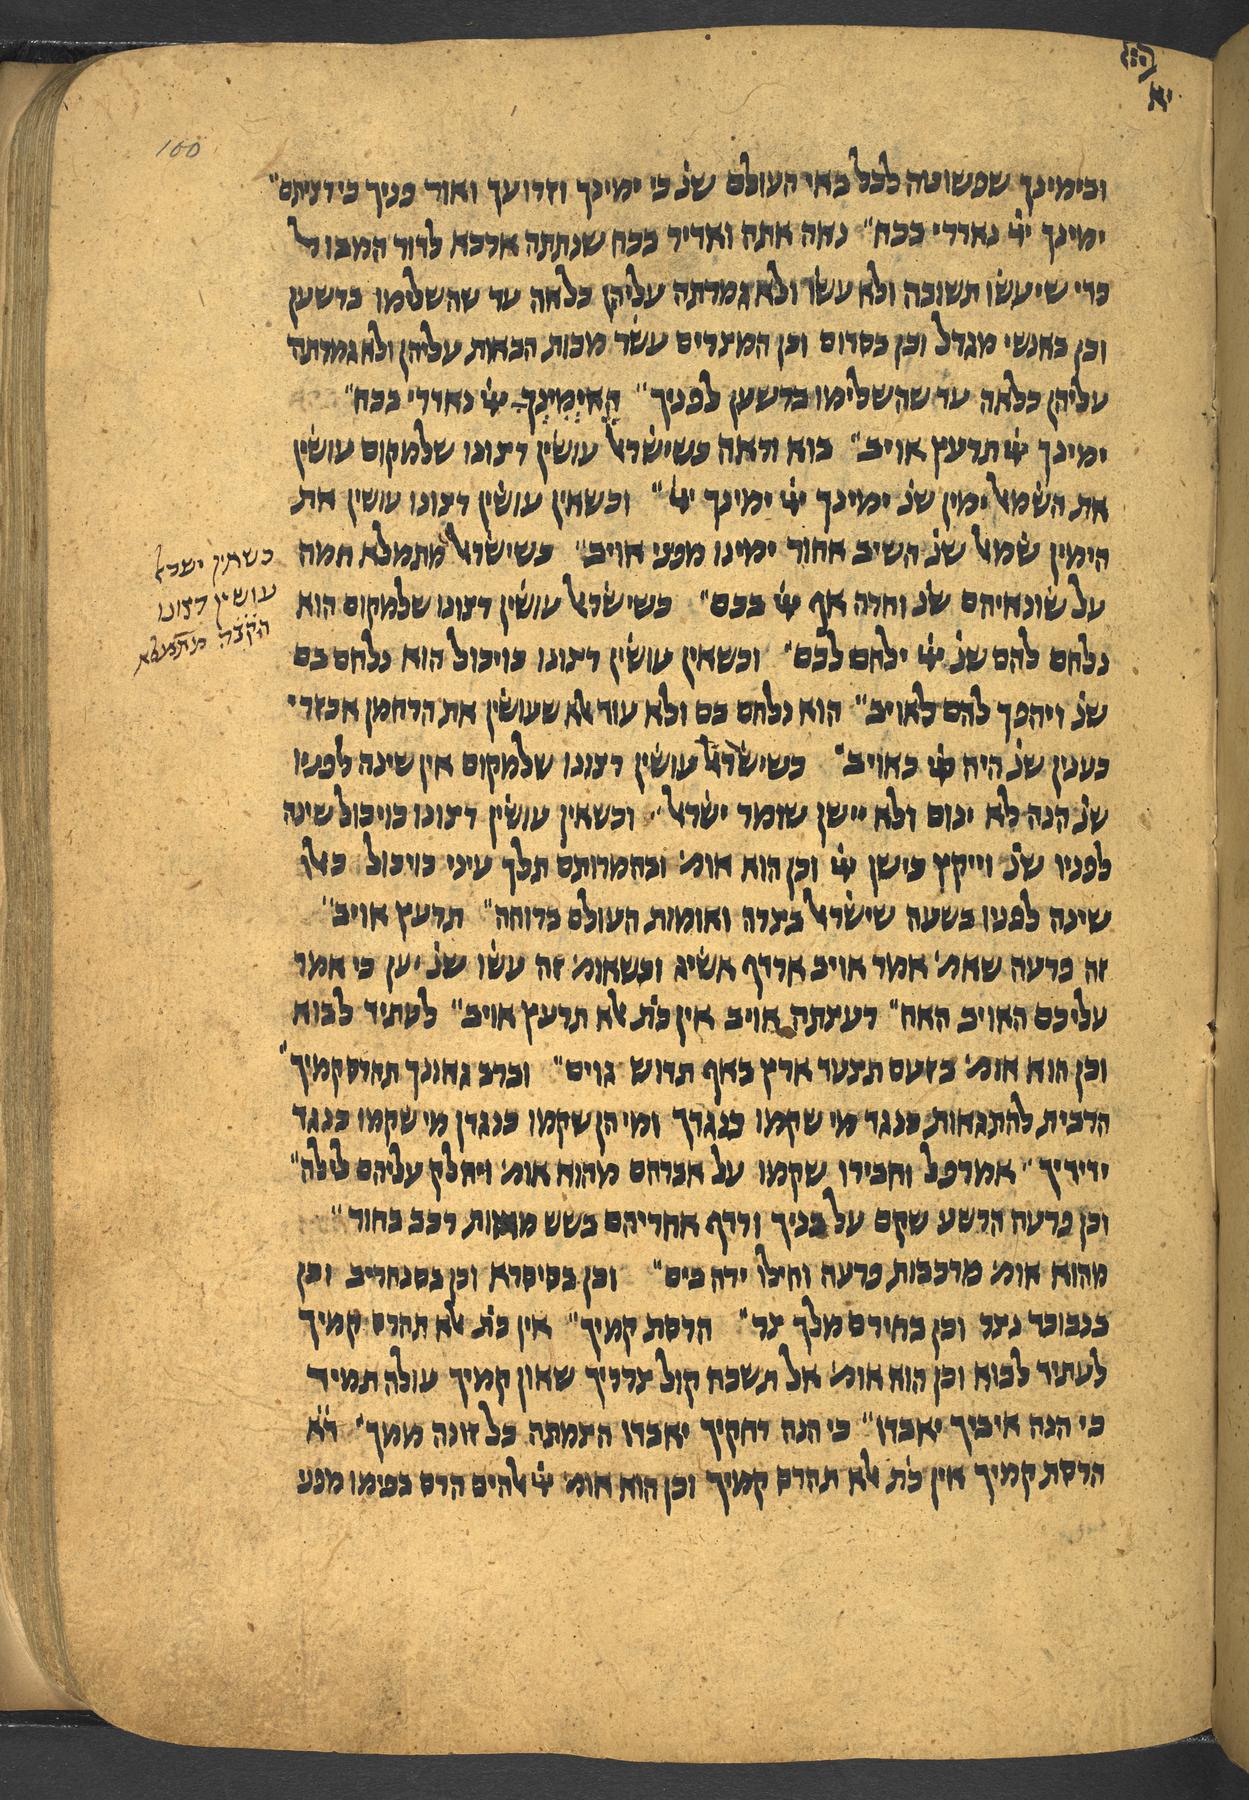 יא
100
ובימינך שפשוטה לכל באי העולם שנ׳ כי ימינך וזרועך ואור פניך כי רציתם״
ימינך יי׳ נאדרי בכח״ נאה אתה ואדיר בכח שנתתה ארכא לדור המבול
כדי שיעשו תשובה ולא עשו ולא גמרתה עליהן כלאה עד שהשלימו ברשען
וכן באנשי מגדל וכן בסדום וכן המצרים עשר מכות הבאות עליהן ולא גמרתה
עליהן כלאה עד שהשלימו ברשען לפניך״ האימינך יי׳ נאדרי בכח״
ימינך יי׳ תרעץ אויב״ בוא וראה כשישראל עושין רצונו שלמקום עושין
את השמאל ימין שנ׳ ימינך יי׳ ימינך יי׳״ וכשאין עושין רצונו עושין את
הימין שמאל שנ׳ השיב אחור ימינו מפני אויב״ כשישראל מתמלא חמה
על שונאיהם שנ׳ וחרה אף יי׳ בכם״ כשישראל עושין רצונו שלמקום הוא
נלחם להם שנ׳ יי׳ ילחם לכם״ וכשאין עושין רצונו כויכול הוא נלחם בם
שנ׳ ויהפך להם לאויב״ הוא נלחם בם ולא עוד אלא שעושין את הרחמן אכזרי
כענין שנ׳ היה יי׳ כאויב״ כשישראל עושין רצונו שלמקום אין שינה לפניו
שנ׳ הנה לא ינום ולא יישן שומר ישראל״ וכשאין עושין רצונו כויכול שינה
לפניו שנ׳ וייקץ כישן יי׳ וכן הוא אומ׳ ובהמרותם תלן עיני כויכול כאלו
שינה לפניו בשעה שישראל בצרה ואומות העולם ברוחה״ תרעץ אויב״
זה פרעה שאמ׳ אמר אויב ארדף אשיג וכשאומ׳ זה עשו שנ׳ יען כי אמר
עליכם האויב האח״ רעצתה אויב אין כת׳ אלא תרעץ אויב״ לעתיד לבוא
וכן הוא אומ׳ בזעם תצער ארץ באף תדוש גוים״ וברב גאונך תהרס קמיך״
הרבית להתגאות כנגד מי שקמו כנגדך ומי הן שקמו כנגדן מי שקמו כנגד
ידידיך״ אמרפל וחבירו שקמו על אברהם מהוא אומ׳ ויחלק עליהם לילה״
וכן פרעה הרשע שקם על בניך ורדף אחריהם בשש מאות רכב בחור״
מהוא אומ׳ מרכבות פרעה וחילו ירה בים״ וכן בסיסרא וכן בסנחריב וכן
בנבוכד נצר וכן בחירם מלך צר״ הרסת קמיך״ אין כת׳ אלא תהרס קמיך
לעתיד לבוא וכן הוא אומ׳ אל תשכח קול צרריך שאון קמיך עולה תמיד
כי הנה איביך יאבדו״ כי הנה רחקיך יאבדו הצמתה כל זונה ממך״ ד׳א׳
הרסת קמיך אין כת׳ אלא תהרס קמיך וכן הוא אומ׳ יי׳ אלהים הרס בפימו מפני
כשאין ישראל
עושין רצונו
הקבה מתמלא